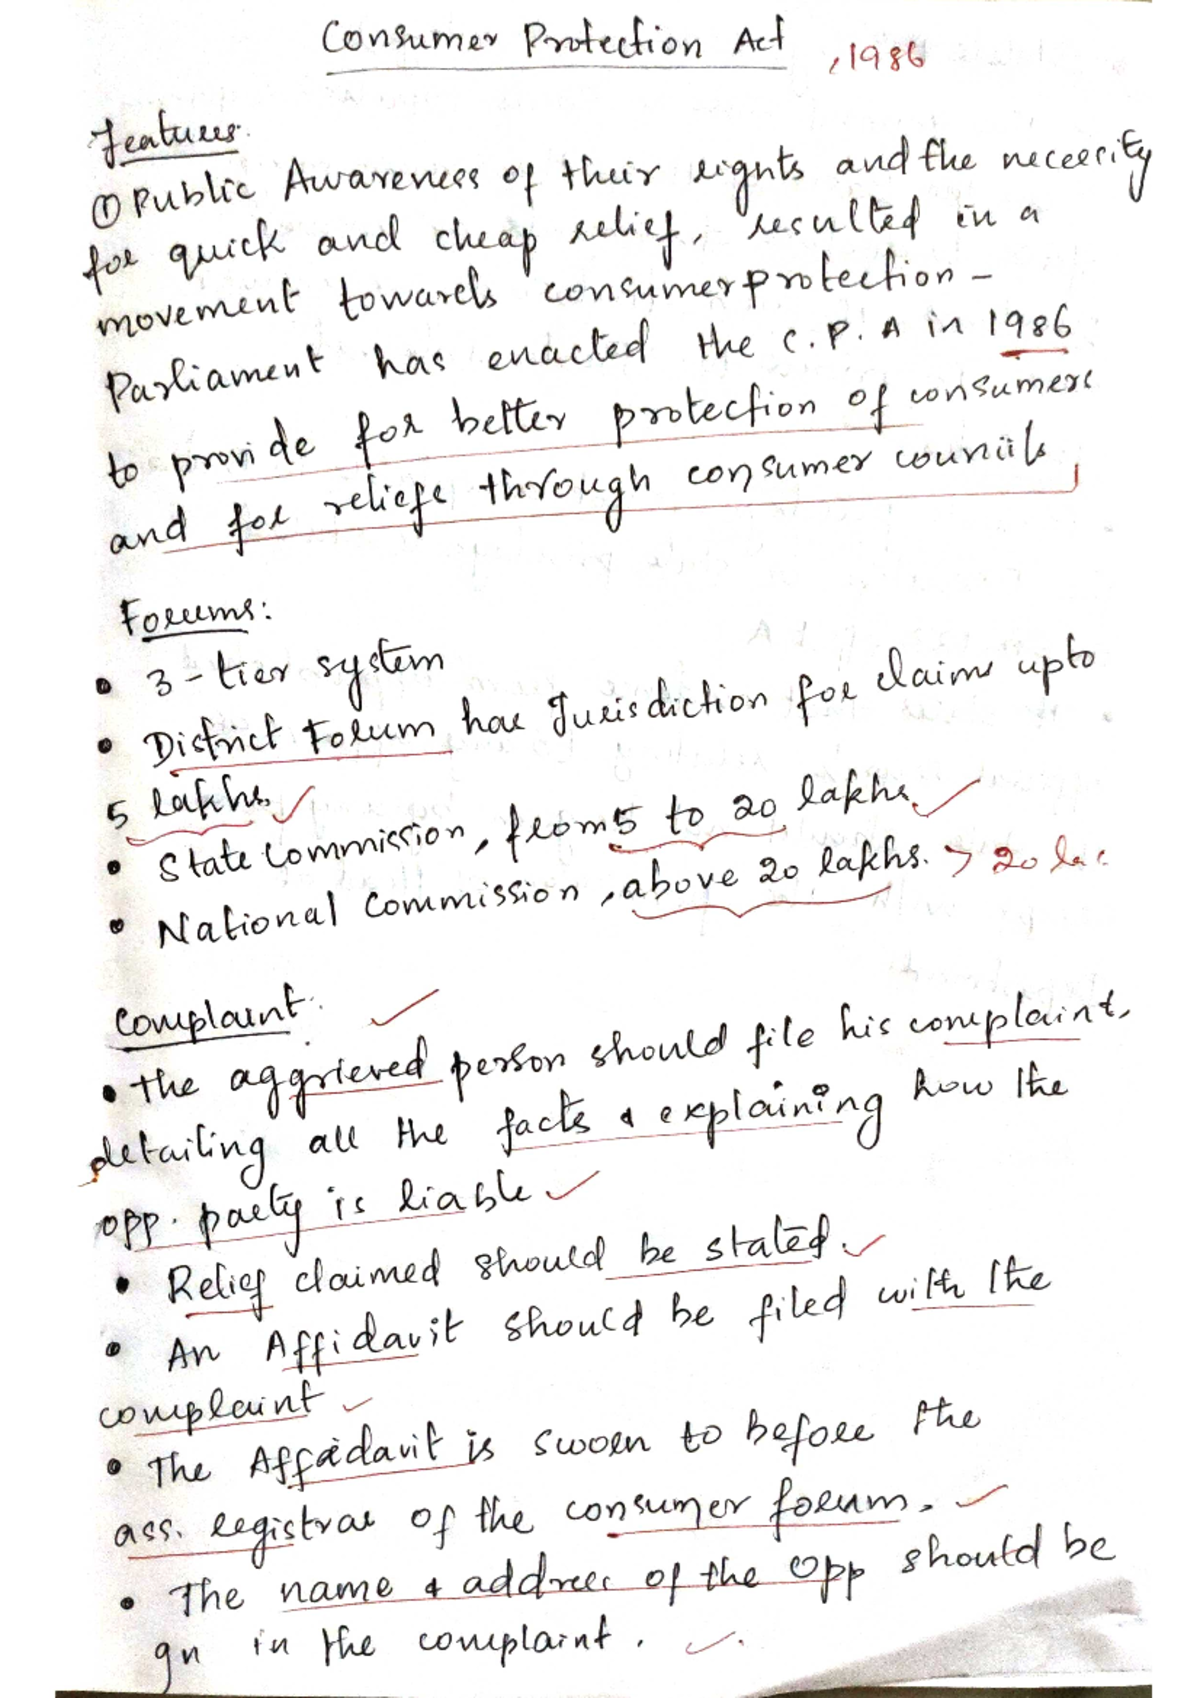 Consumer Protection Act, 1986
Features.
① Public Awareness of their rights and the necessity
for quick and cheap relief, resulted in a
movement towards consumer protection -
Parliament has enacted the C.P.A in 1986
to provide for better protection of consumers
and for reliefs through consumer councils
Forums:
• 3-tier system
• District Forum has Jurisdiction for claims upto
5 lakhs.
• State Commission, from 5 to 20 lakhs
• National Commission, above 20 lakhs. > 20 lac
Complaint:
• The aggrieved person should file his complaint,
detailing all the facts & explaining how the
opp. party is liable
• Relief claimed should be stated.
• An Affidavit should be filed with the
complaint
• The Affidavit is sworn to before the
ass. registrar of the consumer forum.
• The name & address of the opp should be
gn in the complaint.